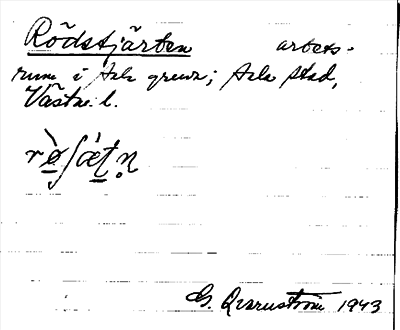 Rödstjärten arbets-
rum i Sala gruva; Sala stad,
Västm. l.
rø̀ʃæ̀tn̥
G. Qvarnström 1943